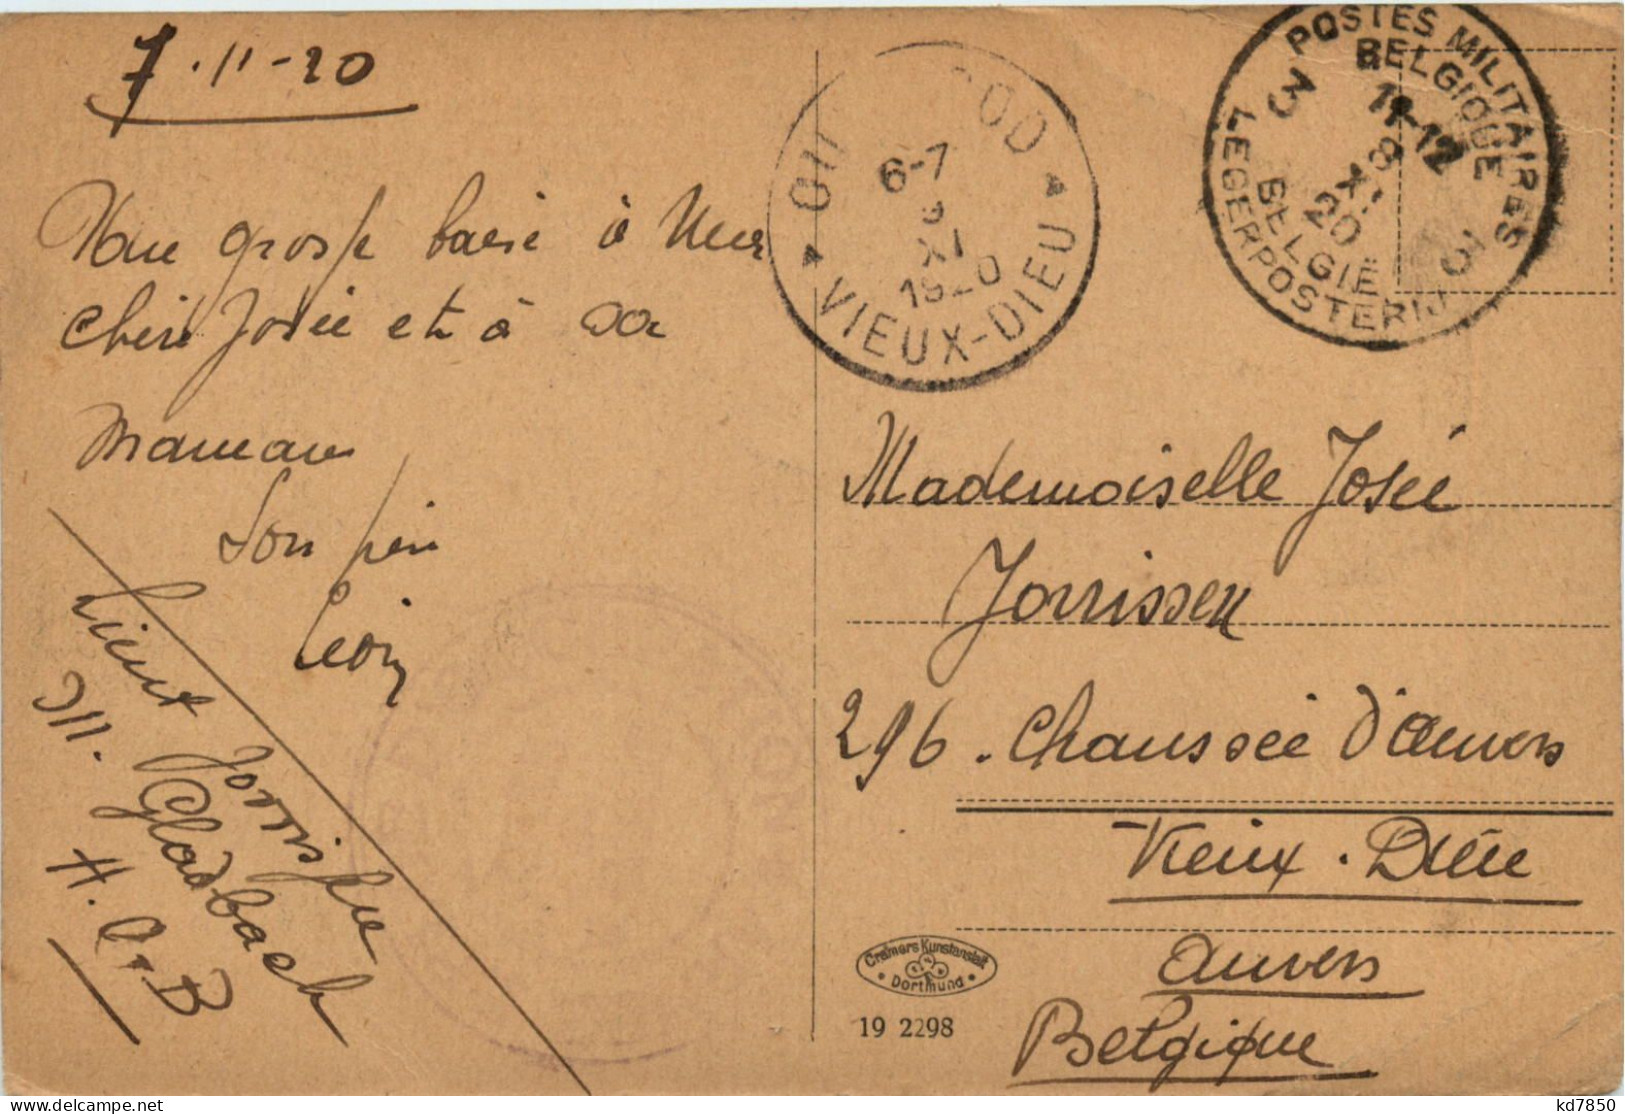 7.11-20
Une grosse baise à Mer
chère Josée et à sa
maman
Son père
Léon
Lieut Jorrissen
M. Gladbach
A.O.B
OUD
6-7
9
XI
1920
VIEUX-DIEU
POSTES MILITAIRES
BELGIQUE
3 11-12 3
8
XI
20
BELGIE
LEGERPOSTERIJ
Mademoiselle Josée
Jorrissen
296. Chaussée d'Anvers
Vieux-Dieu
Anvers
Belgique
Cramers Kunstanstalt
Dortmund
19 2298
kd7850